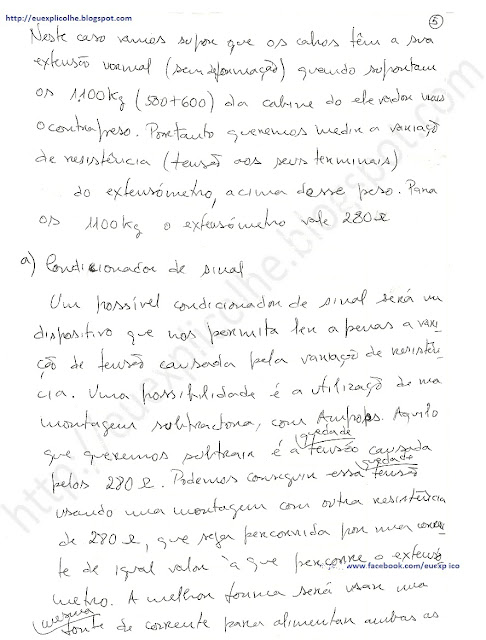 http://euexplicolhe.blogspot.com
5
Neste caso vamos supor que os cabos têm a sua
extensão normal (sem deformação) quando suportam
os 1.100kg (500+600) da cabine do elevador mais
o contrapeso. Portanto queremos medir a variação
de resistência (tensão aos seus terminais)
do extensómetro, acima desse peso. Para
os 1100kg o extensómetro vale 280Ω
a) Condicionador de sinal
Um possível condicionador de sinal será um
dispositivo que nos permita ler apenas a vari-
ação de tensão causada pela variação de resistên-
cia. Uma possibilidade é a utilização de uma
montagem subtractora, com Ampops. Aquilo
que queremos subtrair é a queda de tensão causada
pelos 280Ω. Podemos conseguir essa queda de tensão
usando uma montagem com outra resistência
de 280Ω, que seja percorrida por uma corren-
te de igual valor à que percorre o extensó
www.facebook.com/euexp ico
metro. A melhor forma será usar uma
mesma fonte de corrente para alimentar ambas as
http://euexplicolhe.blogspot.com